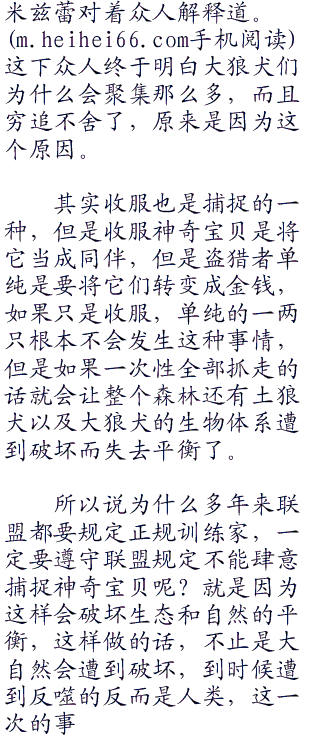 米兹蕾对着众人解释道。
(m.heihei66.com手机阅读)
这下众人终于明白大狼犬们
为什么会聚集那么多，而且
穷追不舍了，原来是因为这
个原因。
其实收服也是捕捉的一
种，但是收服神奇宝贝是将
它当成同伴，但是盗猎者单
纯是要将它们转变成金钱，
如果只是收服，单纯的一两
只根本不会发生这种事情，
但是如果一次性全部抓走的
话就会让整个森林还有土狼
犬以及大狼犬的生物体系遭
到破坏而失去平衡了。
所以说为什么多年来联
盟都要规定正规训练家，一
定要遵守联盟规定不能肆意
捕捉神奇宝贝呢？就是因为
这样会破坏生态和自然的平
衡，这样做的话，不止是大
自然会遭到破坏，到时候遭
到反噬的反而是人类，这一
次的事